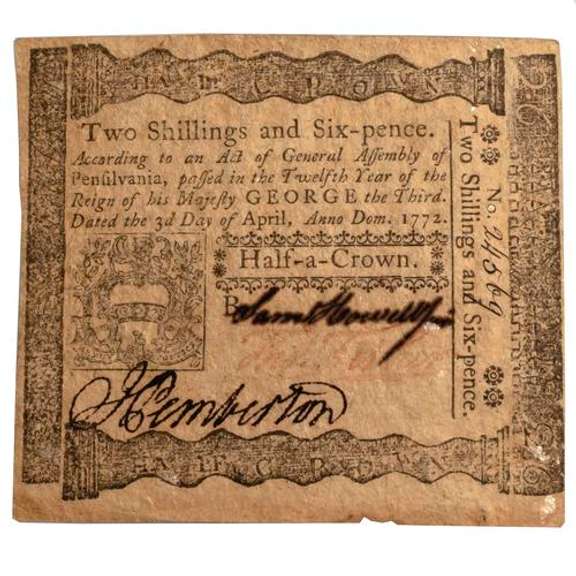 HALF CROWN
Two Shillings and Six-pence.
According to an Act of General Assembly of
Pensilvania, passed in the Twelfth Year of the
Reign of his Majesty GEORGE the Third.
Dated the 3d Day of April, Anno Dom. 1772.
Half-a-Crown.
Saml Howell
J Pemberton
HALF CROWN
No. 24569
Two Shillings and Six-pence.